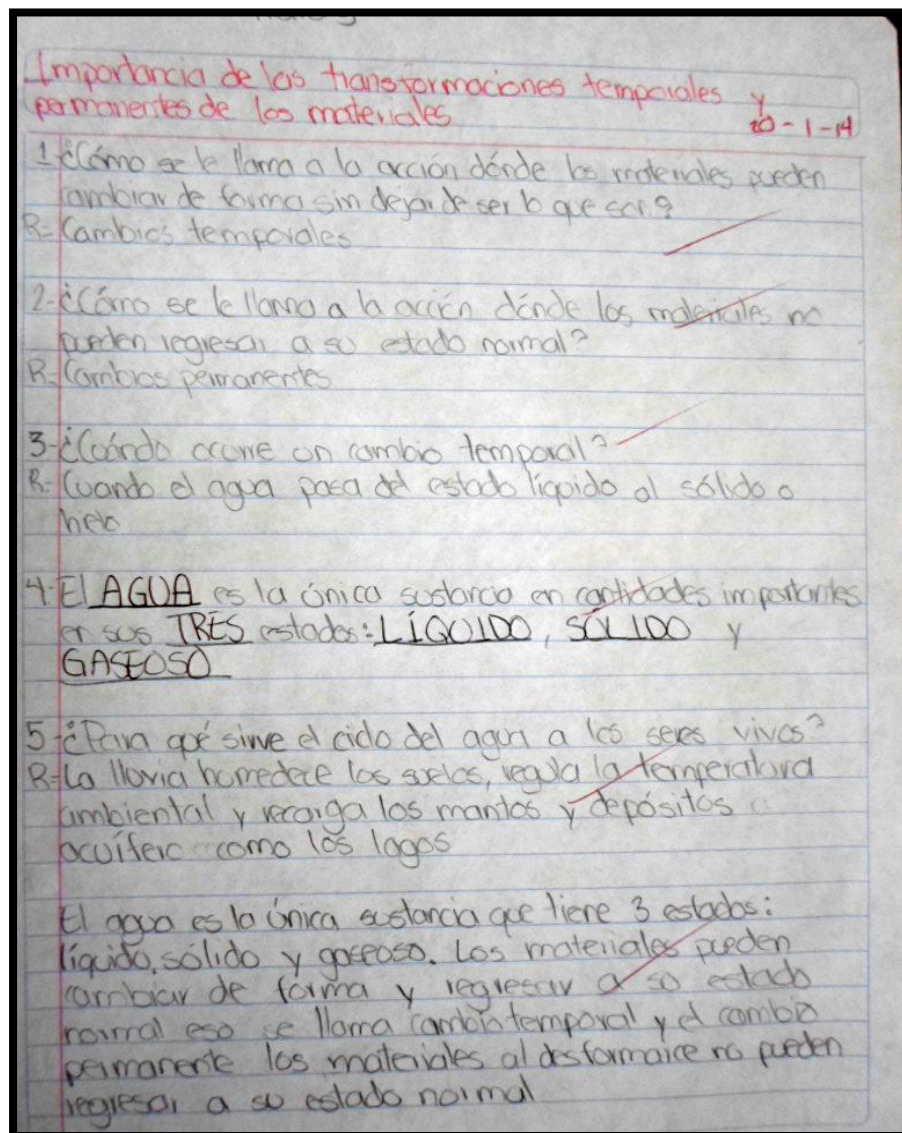 Importancia de las transformaciones temporales y
permanentes de los materiales
20-1-14
1-¿Cómo se le llama a la acción dónde los materiales pueden
cambiar de forma sin dejar de ser lo que son?
R= Cambios temporales
2-¿Cómo se le llama a la acción dónde los materiales no
pueden regresar a su estado normal?
R= Cambios permanentes
3-¿Cuándo ocurre un cambio temporal?
R= Cuando el agua pasa del estado líquido al sólido o
hielo
4-El AGUA es la única sustancia en cantidades importantes
en sus TRES estados: LÍQUIDO, SÓLIDO y
GASEOSO
5-¿Para qué sirve el ciclo del agua a los seres vivos?
R= La lluvia humedece los suelos, regula la temperatura
ambiental y recarga los mantos y depósitos
acuífero como los lagos
El agua es la única sustancia que tiene 3 estados:
líquido, sólido y gaseoso. Los materiales pueden
cambiar de forma y regresar a su estado
normal eso se llama cambio temporal y el cambio
permanente los materiales al desformarce no pueden
regresar a su estado normal